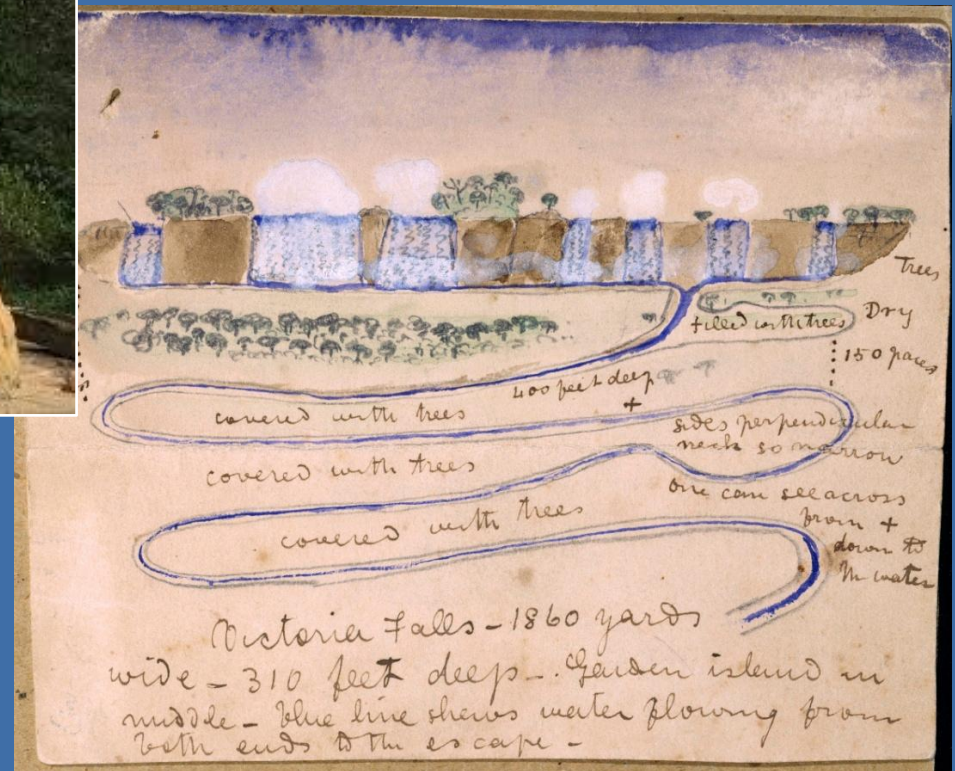 Trees
Dry
filled with trees
150 paces
400 feet deep
+
covered with trees
sides perpendicular
neck so narrow
covered with trees
one can see across
from +
down to
the water
covered with trees
Victoria Falls - 1860 yards
wide - 310 feet deep -. Garden island in
middle - blue line shews water flowing from
both ends to the escape -